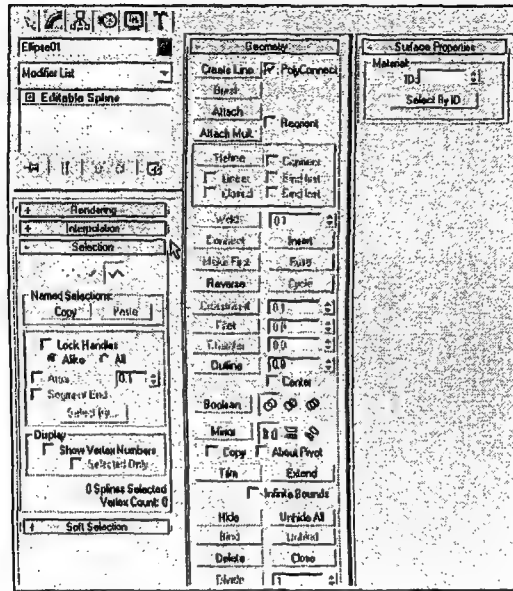 Ellipse01
Modifier List
Editable Spline
+ Rendering
+ Interpolation
- Selection
Named Selections:
Copy Paste
Lock Handles
Alike All
Area 0.1
Segment End
Select By...
Display
Show Vertex Numbers
Selected Only
0 Splines Selected
Vertex Count: 0
+ Soft Selection
- Geometry
Create Line PolyConnect
Break
Attach
Attach Mult. Reorient
Refine Connect
Linear Bind first
Closed Bind last
Weld 0.1
Connect Insert
Make First Fuse
Reverse Cycle
CrossInsert 0.1
Fillet 0.0
Chamfer 0.0
Outline 0.0
Center
Boolean
Mirror
Copy About Pivot
Trim Extend
Infinite Bounds
Hide Unhide All
Bind Unbind
Delete Close
Divide 1
- Surface Properties
Material:
ID:
Select By ID